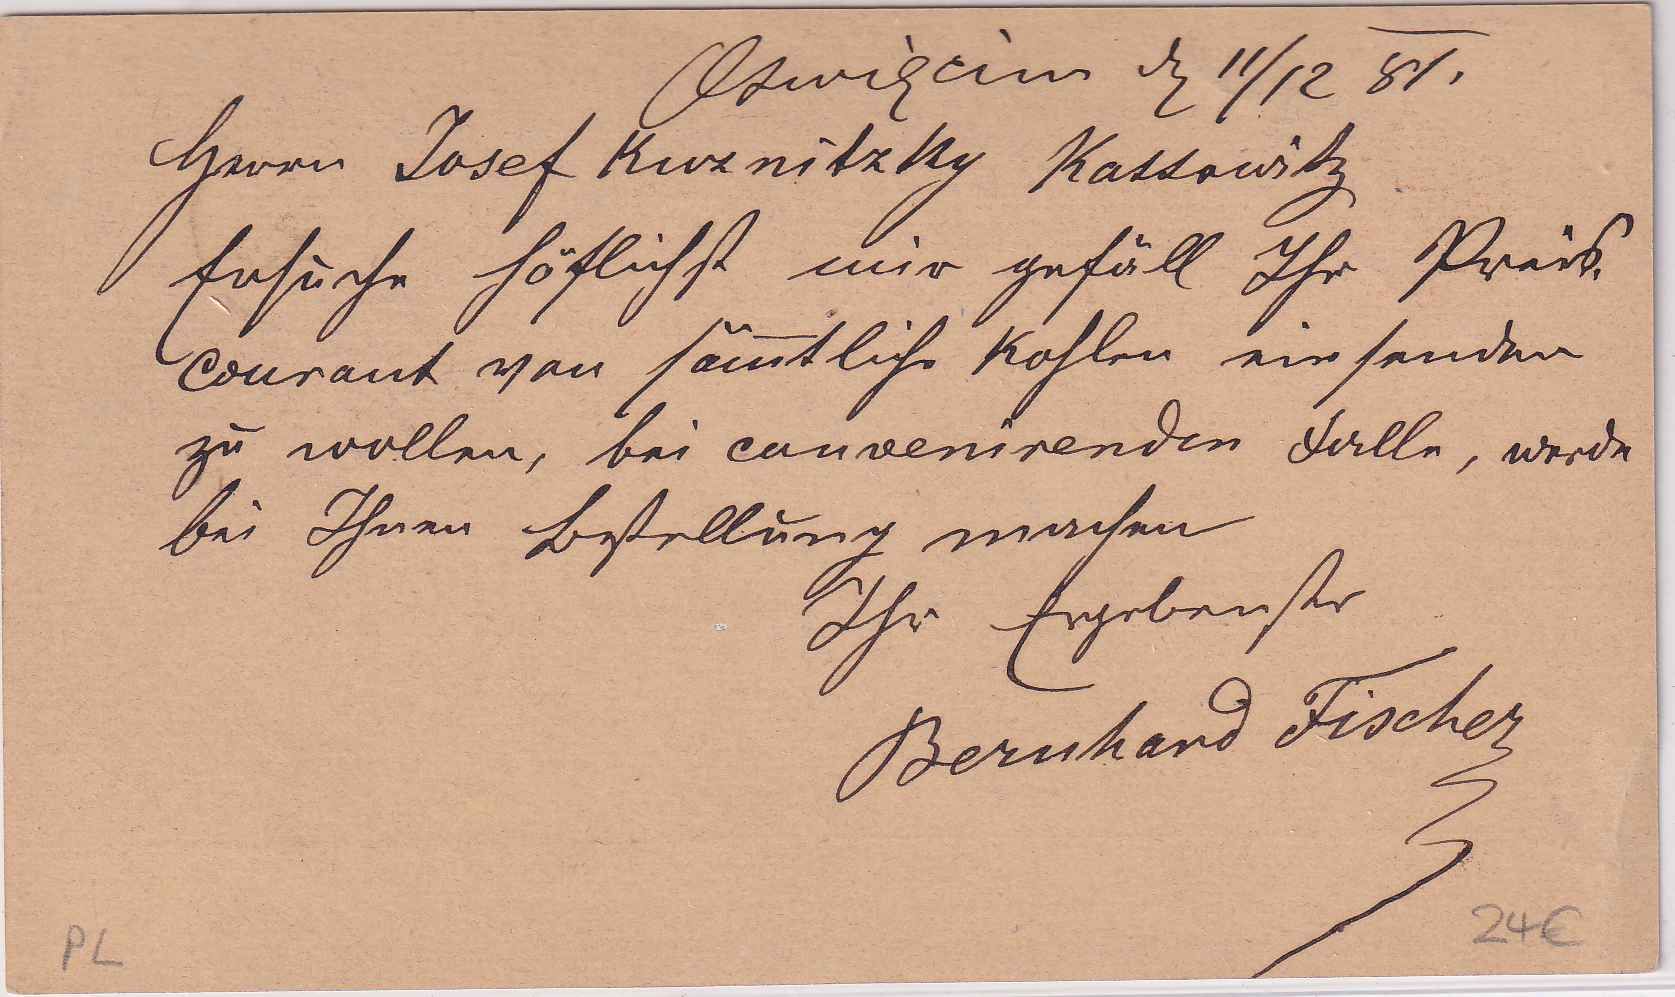 Oswięcim d 11/12 81.
Herrn Josef Kuznitzky Kattowitz
Ersuche höflichst mir gefäll Ihr Preis.
Courant von sämtliche Kohlen einsenden
zu wollen, bei convenirenden Falle, werde
bei Ihnen Bestellung machen
Ihr Ergebenster
Bernhard Fischer
PL
24€